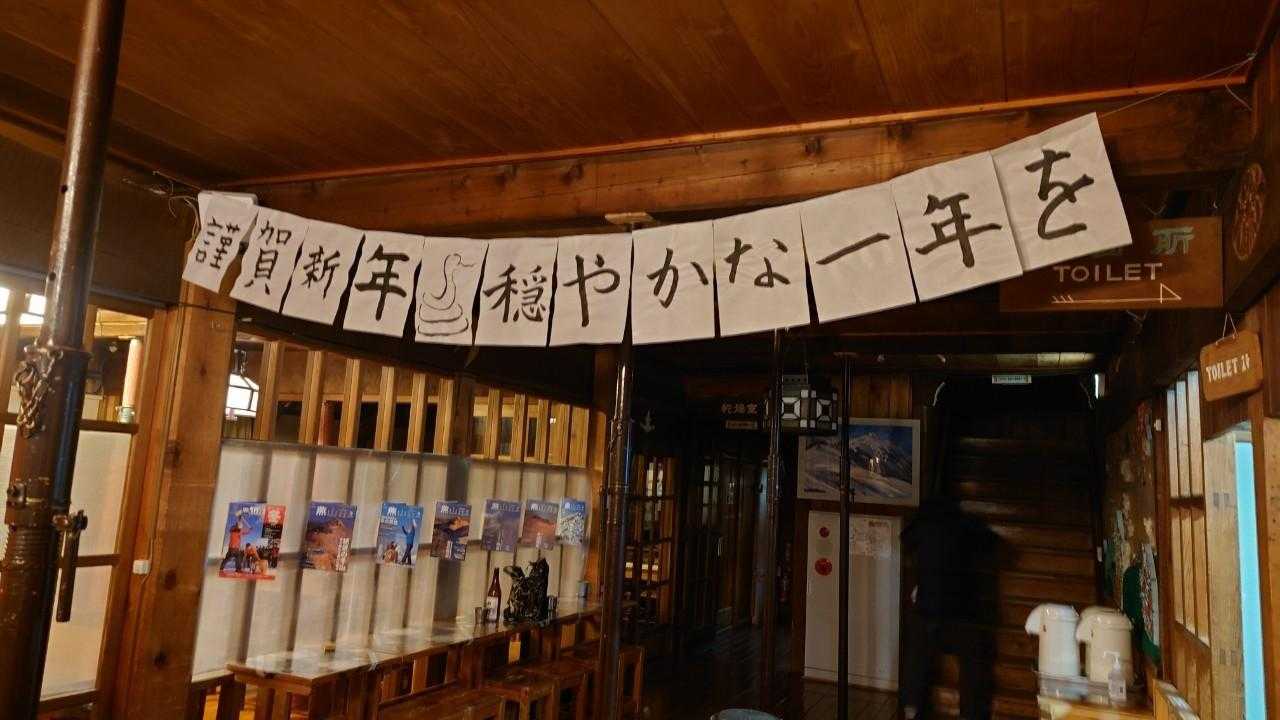 謹賀新年 穏やかな一年を
所
TOILET
TOILET
乾燥室